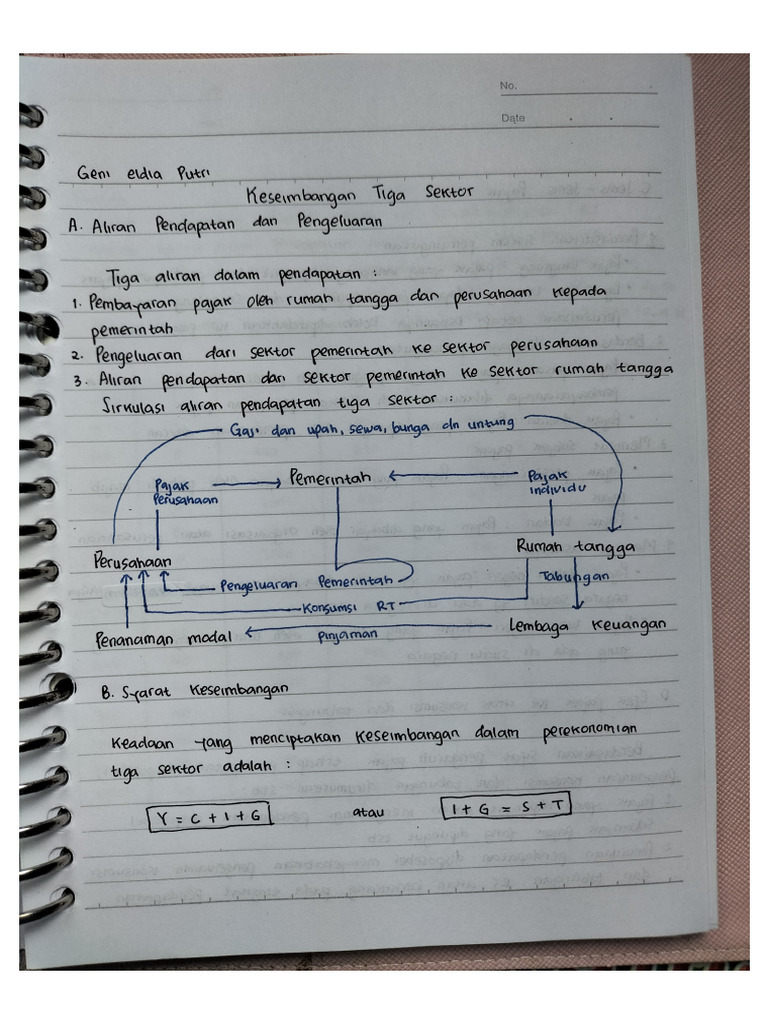 No.
Date
Geni eldia Putri
Keseimbangan Tiga Sektor
A. Aliran Pendapatan dan Pengeluaran
Tiga aliran dalam pendapatan :
1. Pembayaran pajak oleh rumah tangga dan perusahaan kepada
pemerintah
2. Pengeluaran dari sektor pemerintah ke sektor perusahaan
3. Aliran pendapatan dari sektor pemerintah ke sektor rumah tangga
Sirkulasi aliran pendapatan tiga sektor :
Gaji dan upah, sewa, bunga dn untung
Pajak
Perusahaan
Pemerintah
Pajak
individu
Perusahaan
Rumah tangga
Pengeluaran Pemerintah
Tabungan
Konsumsi RT
Penanaman modal
pinjaman
Lembaga keuangan
B. Syarat Keseimbangan
Keadaan yang menciptakan keseimbangan dalam perekonomian
tiga sektor adalah :
Y = C + I + G atau I + G = S + T